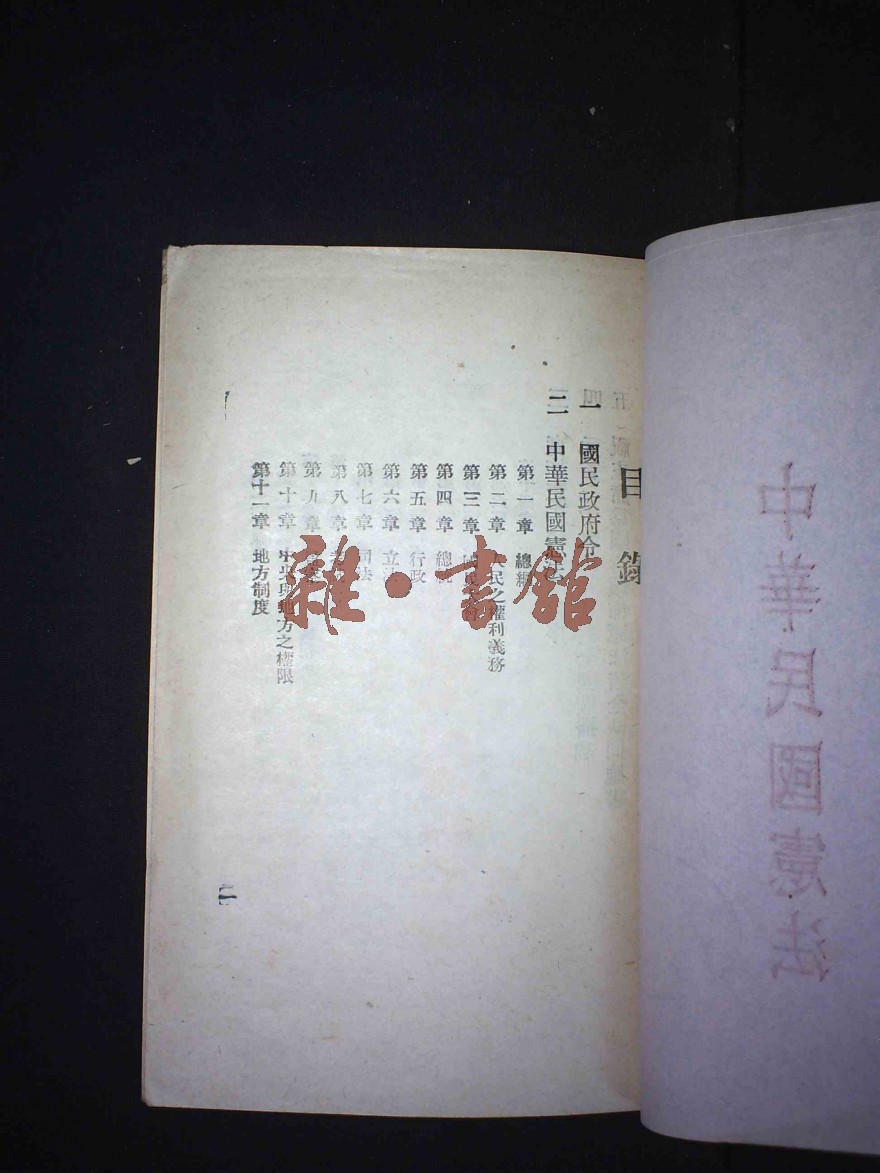 中華民國憲法
目錄
一 國民政府令
二 中華民國憲
第一章 總綱
第二章 人民之權利義務
第三章
第四章 總
第五章 行政
第六章 立法
第七章 司法
第八章
第九章
第十章 中央與地方之權限
第十一章 地方制度
雜·書館